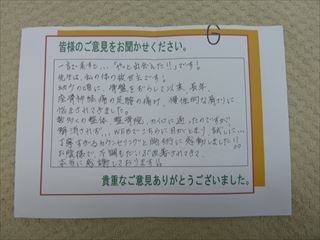 G
皆様のご意見をお聞かせください。
一言で表すと…「やっと出会えた!!」です!
先生は、私の体の救世主です!
幼少の頃に、骨盤をずらして以来、長年、
座骨神経痛の足腰の痛み、慢性的な肩こりに
悩まされてきました。
数多くの整体、整骨院、カイロに通ったのですが、
解消されず… WEBでこちらに目がとまり、試しに…
丁寧すぎるカウンセリングと施術に感動しました!!
お陰様で、不調もだいぶ改善されてきて、
本当に感謝しております。
貴重なご意見ありがとうございました。